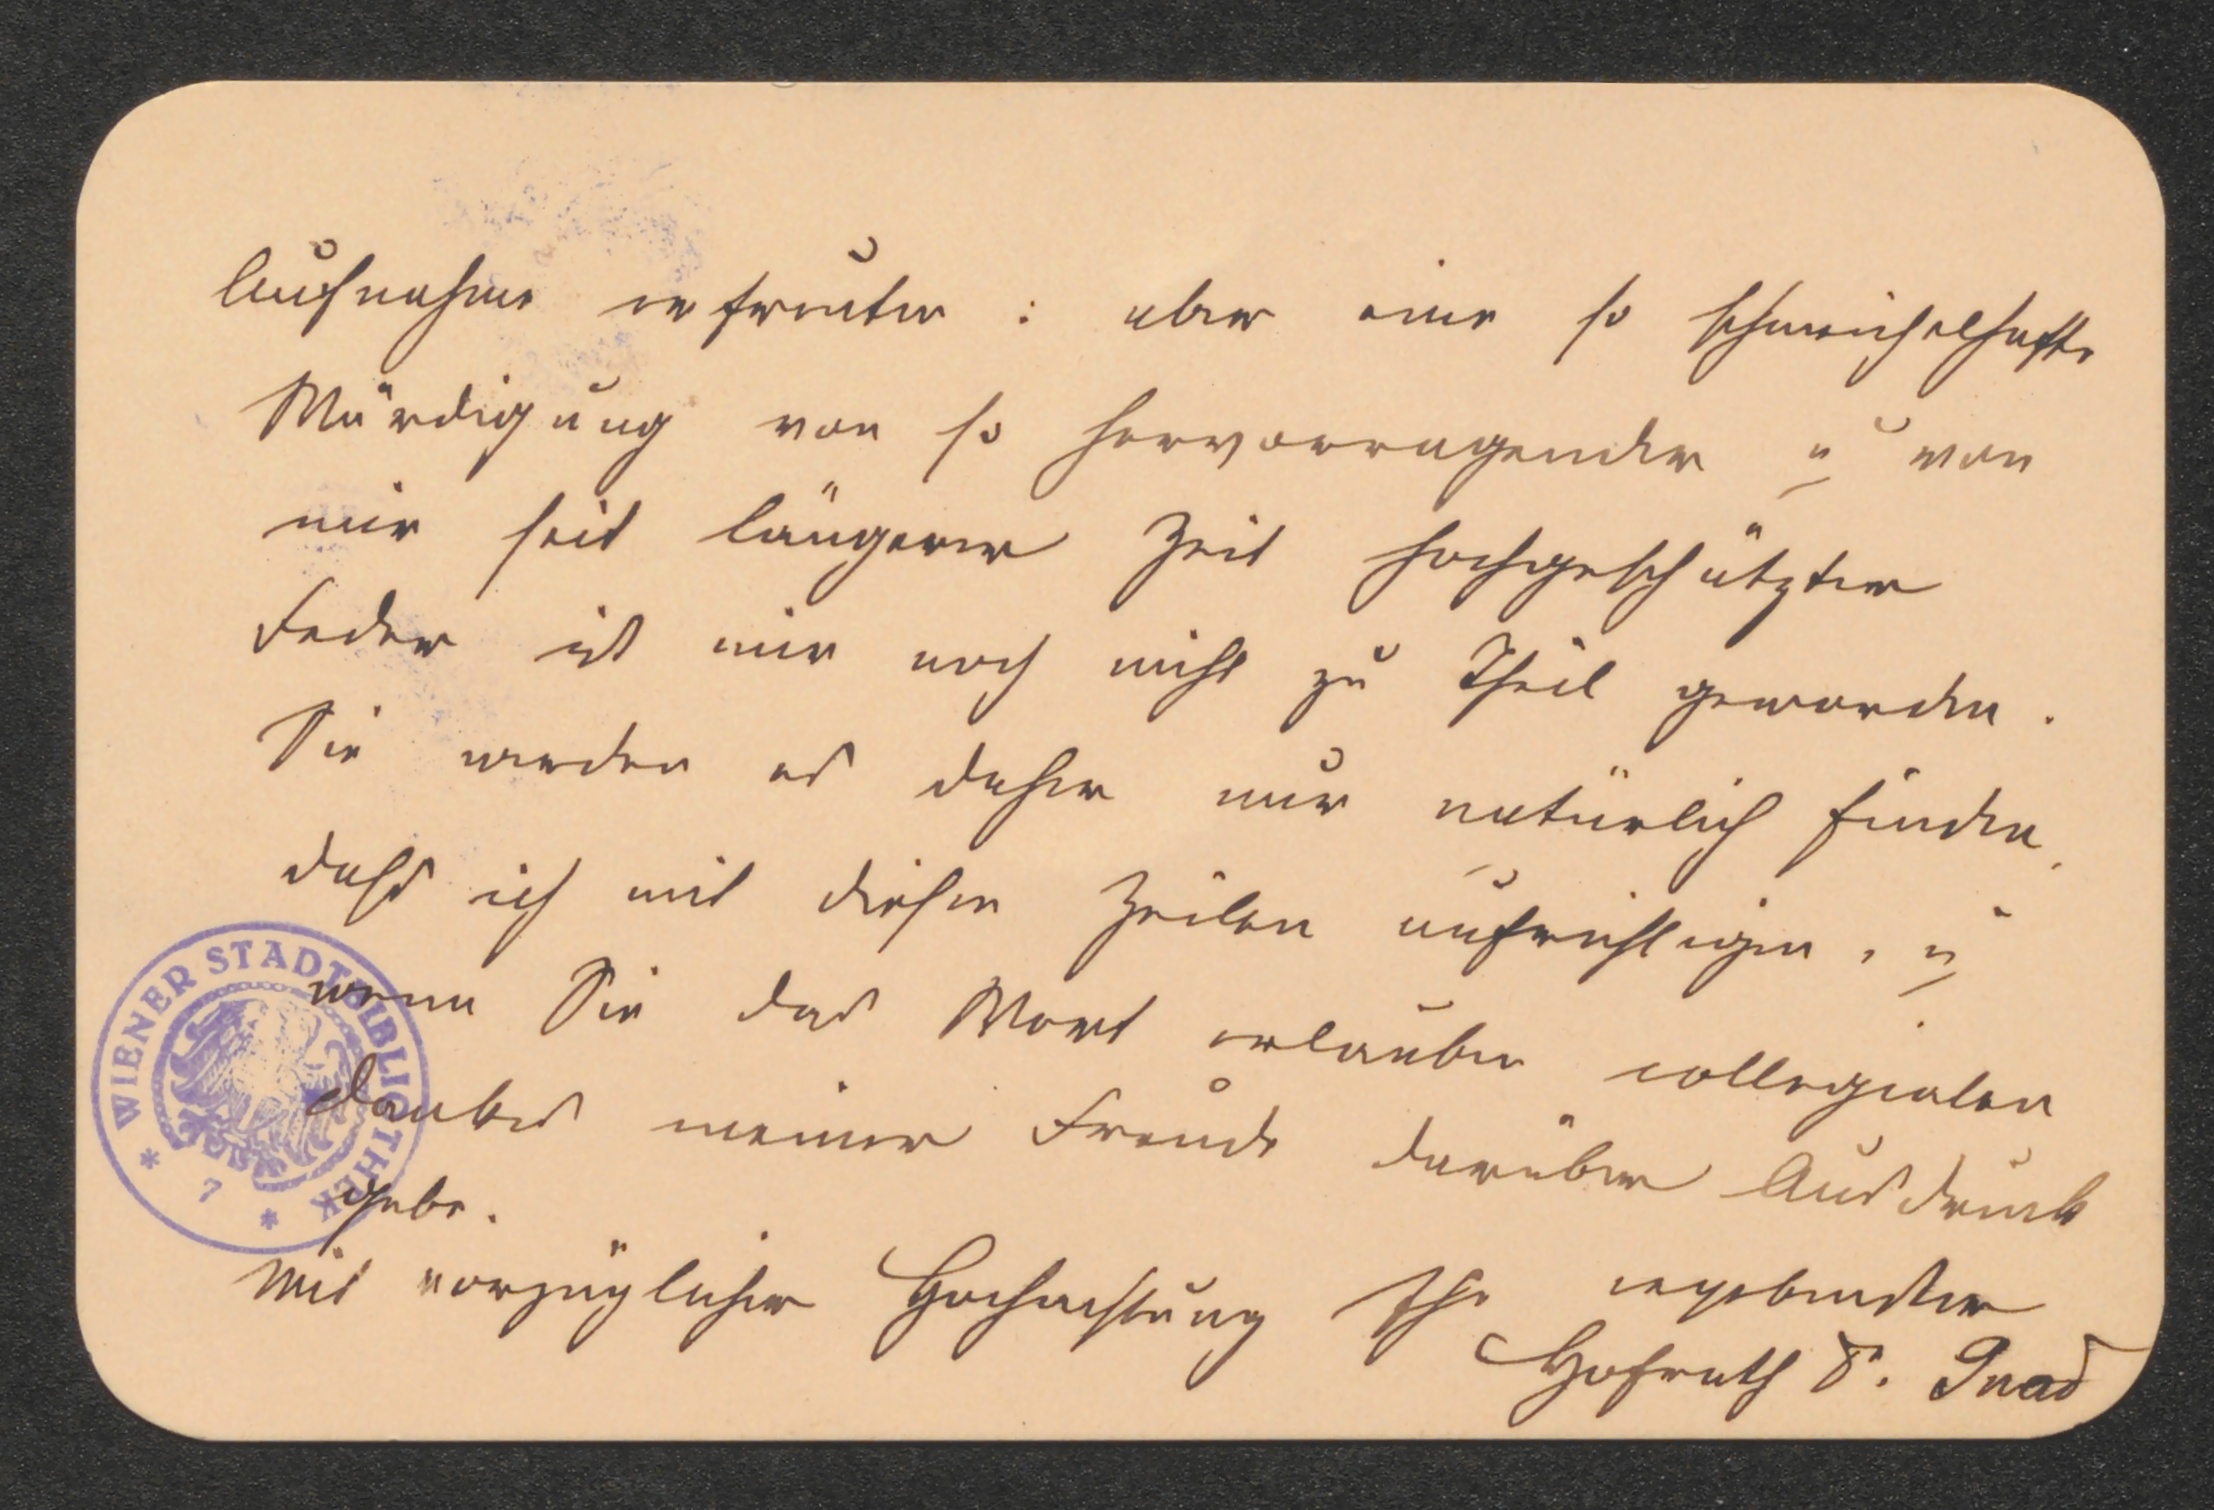 Aufnahme erfreuten : aber eine so schmeichelhafte
Würdigung von so hervorragender u von
mir seit längerer Zeit hochgeschätzter
Feder ist mir noch nicht zu Theil geworden.
Sie werden es daher nur natürlich finden,
daß ich mit diesen Zeilen aufrichtigen, u
wenn Sie das Wort erlauben collegialen
Dankes meiner Freude darüber Ausdruck
gebe.
Mit vorzüglicher Hochachtung Ihr ergebenster
Hofrath Dr. Gnad
WIENER STADTBIBLIOTHEK
* 7 *